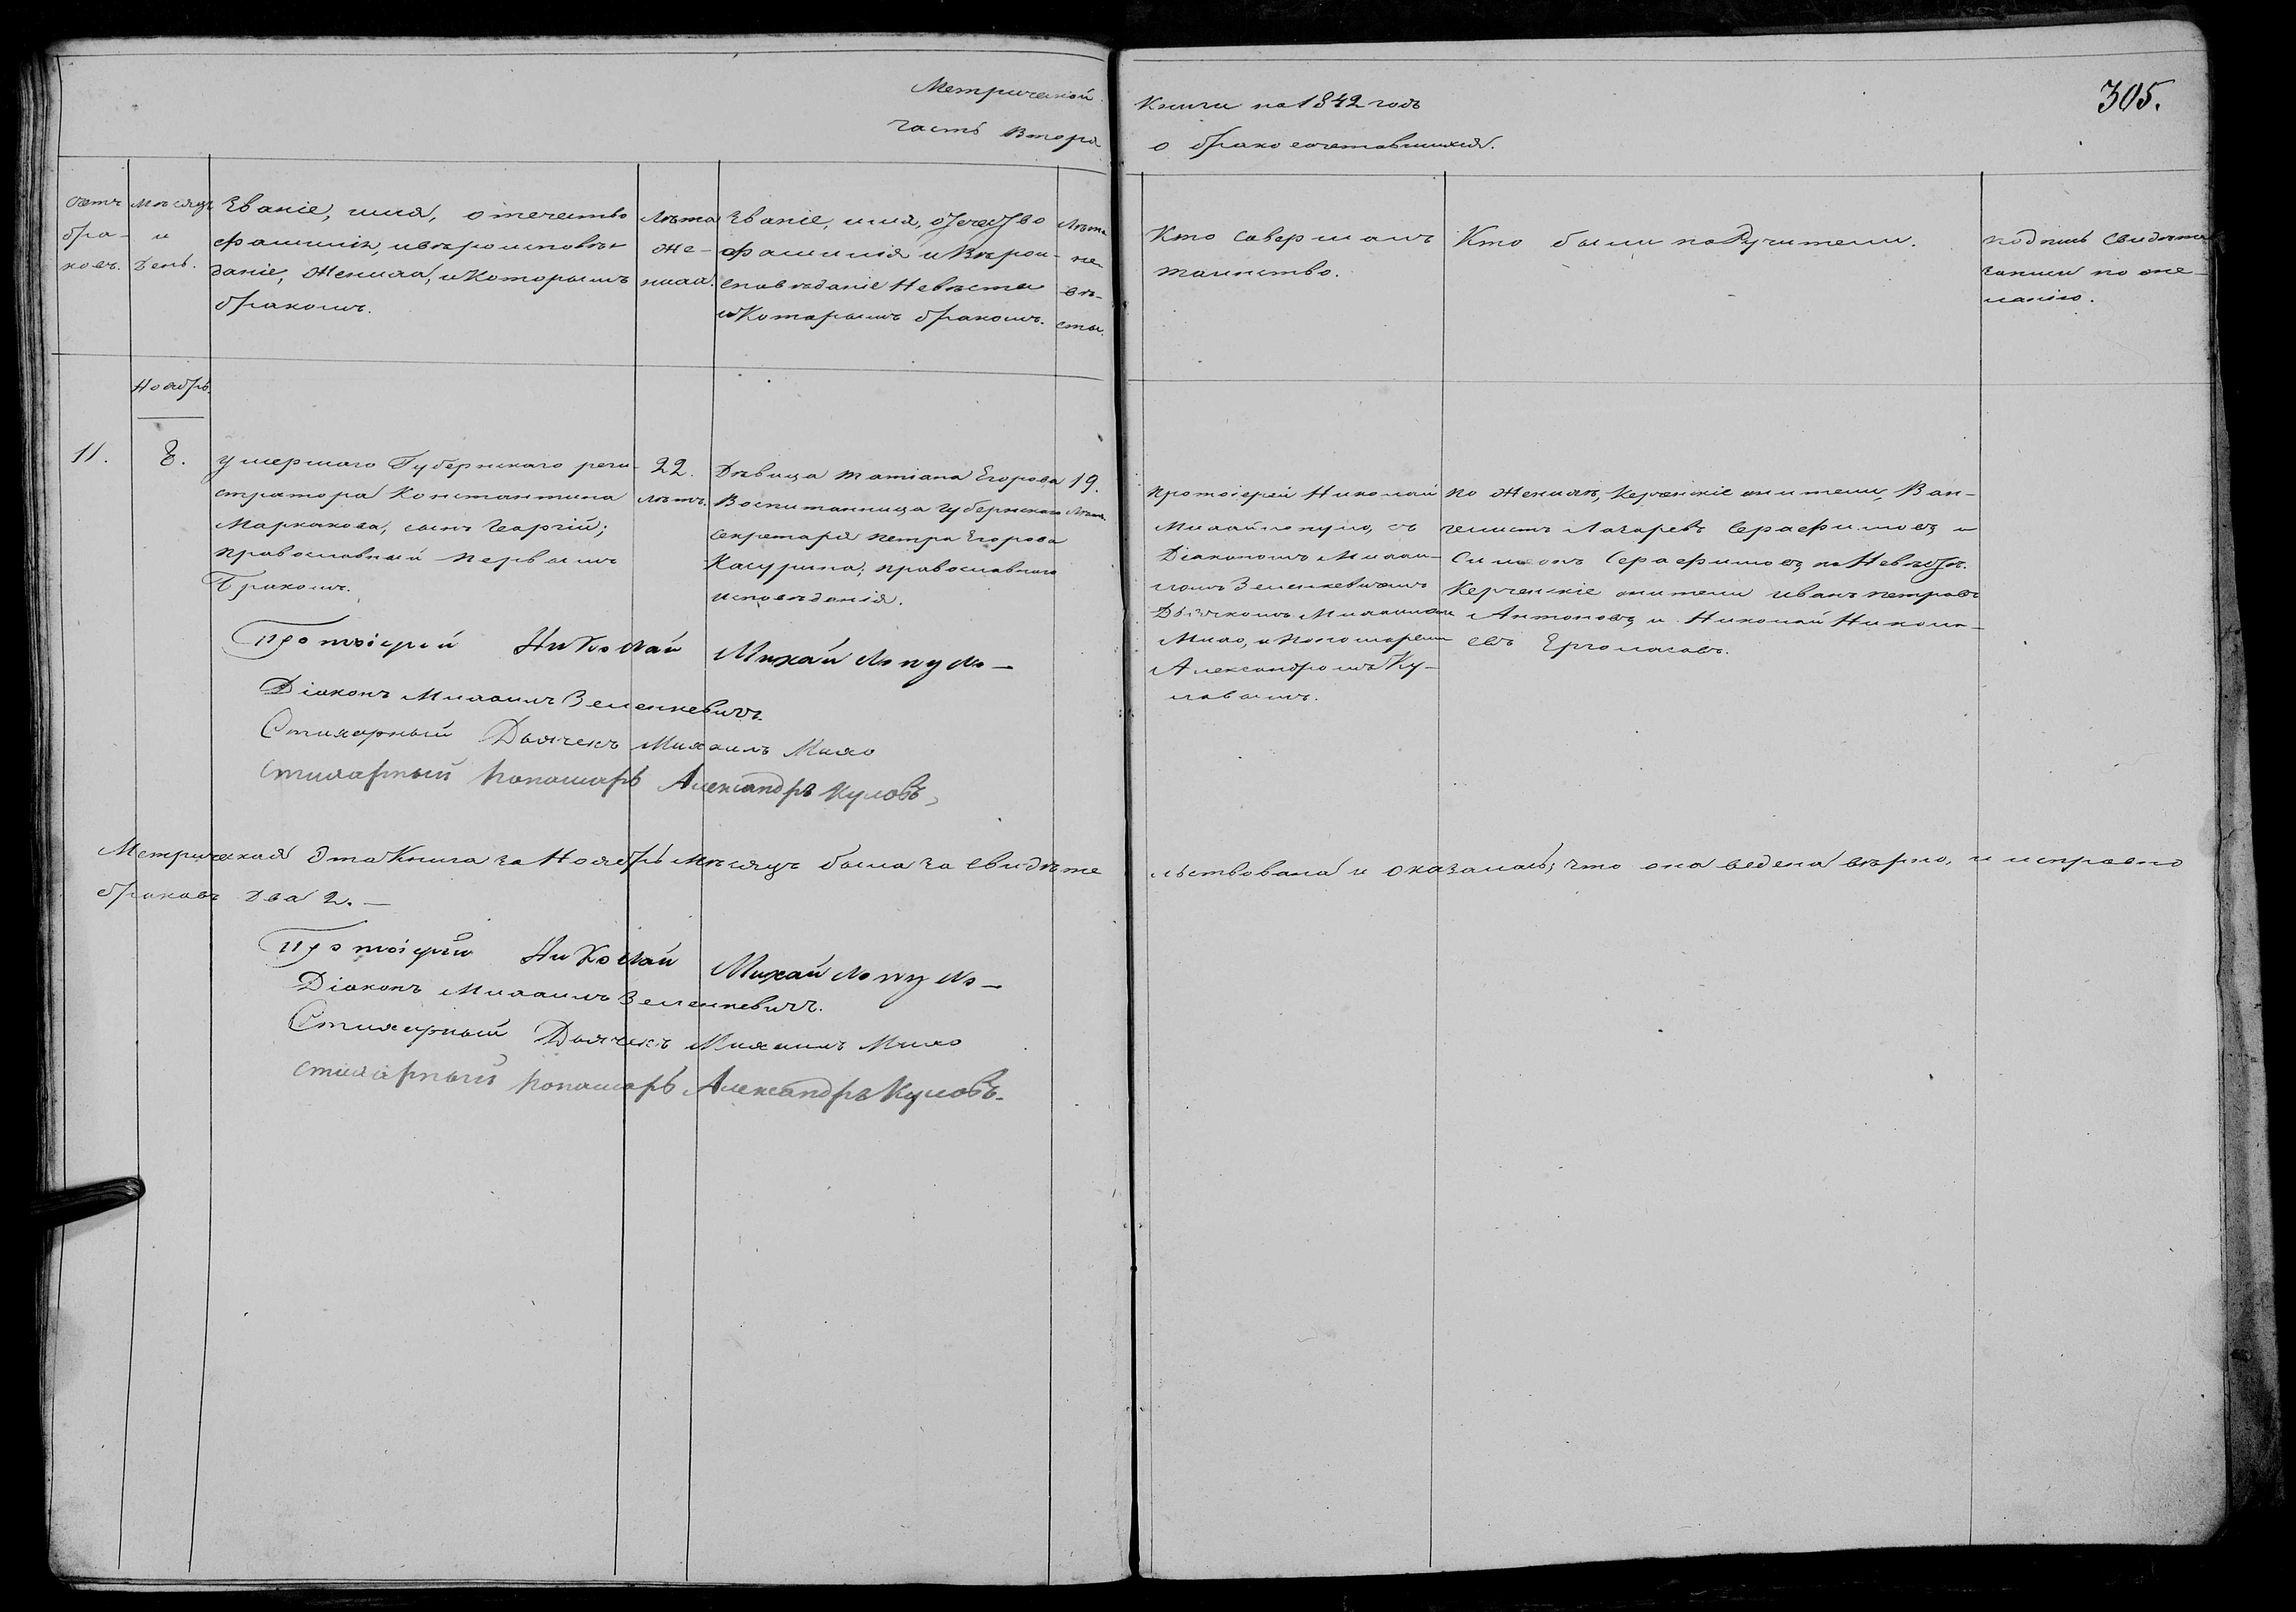 Метрической
часть втора
Книги на 1842 годъ
о брако сочетавшихся.
305.
Счетъ бра-ковъ.
Мѣсяцъ и День.
Званіе, имя, отечество
фамилія, и вѣроисповѣ-
даніе, Жениха, и Которымъ
бракомъ.
Лѣта
Же-
ниха.
Званіе, имя, отечество
фамилія и Вѣрои-
сповѣданіе Невѣсты
и Которымъ бракомъ.
Лѣта
не-
вѣ-
сты.
Кто Совершалъ
таинство.
Кто были поручители.
подпись свидѣте
записи по же-
ланію.
Ноябрь.
11.
8.
умершаго Губернскаго реги-
стратора Константина
Маркакова, сынъ Георгій;
православный первымъ
Бракомъ.
22.
лѣтъ.
Дѣвица татіана Егорова
Воспитанница губернскаго
секретаря петра Егорова
православнаго
исповѣданія.
19.
лѣтъ.
протоіерей Николай
Михайлопуло, съ
Діакономъ Михаи-
ломъ Зеленкевичемъ
Дьячкомъ Михаиломъ
Михо, и пономаремъ
Александромъ Ку-
ловымъ.
по Женихѣ, Керченскіе жители, Ван-
гелистъ Лазаревъ Серафимовъ и
Симеонъ Серафимовъ, по Невѣстѣ.
Керченскіе жители иванъ петровъ
Антоновъ и Николай Никола-
евъ Ергопаговъ.
Протоіерей Николай Михайлопуло—
Діаконъ Михаилъ Зеленкевичъ
Стихарный Дьячекъ Михаилъ Михо
стихарный пономарь Александръ Куловъ,
Метрическая Эта Книга за Ноябрь Мѣсяцъ была за свидѣте
льствована и оказалась, что она ведена вѣрно, и исправно
браковъ два 2.—
Протоіерей Николай Михайлопуло—
Діаконъ Михаилъ Зеленкевичъ.
Стихарный Дьячекъ Михаилъ Михо
стихарный пономарь Александръ Куловъ.